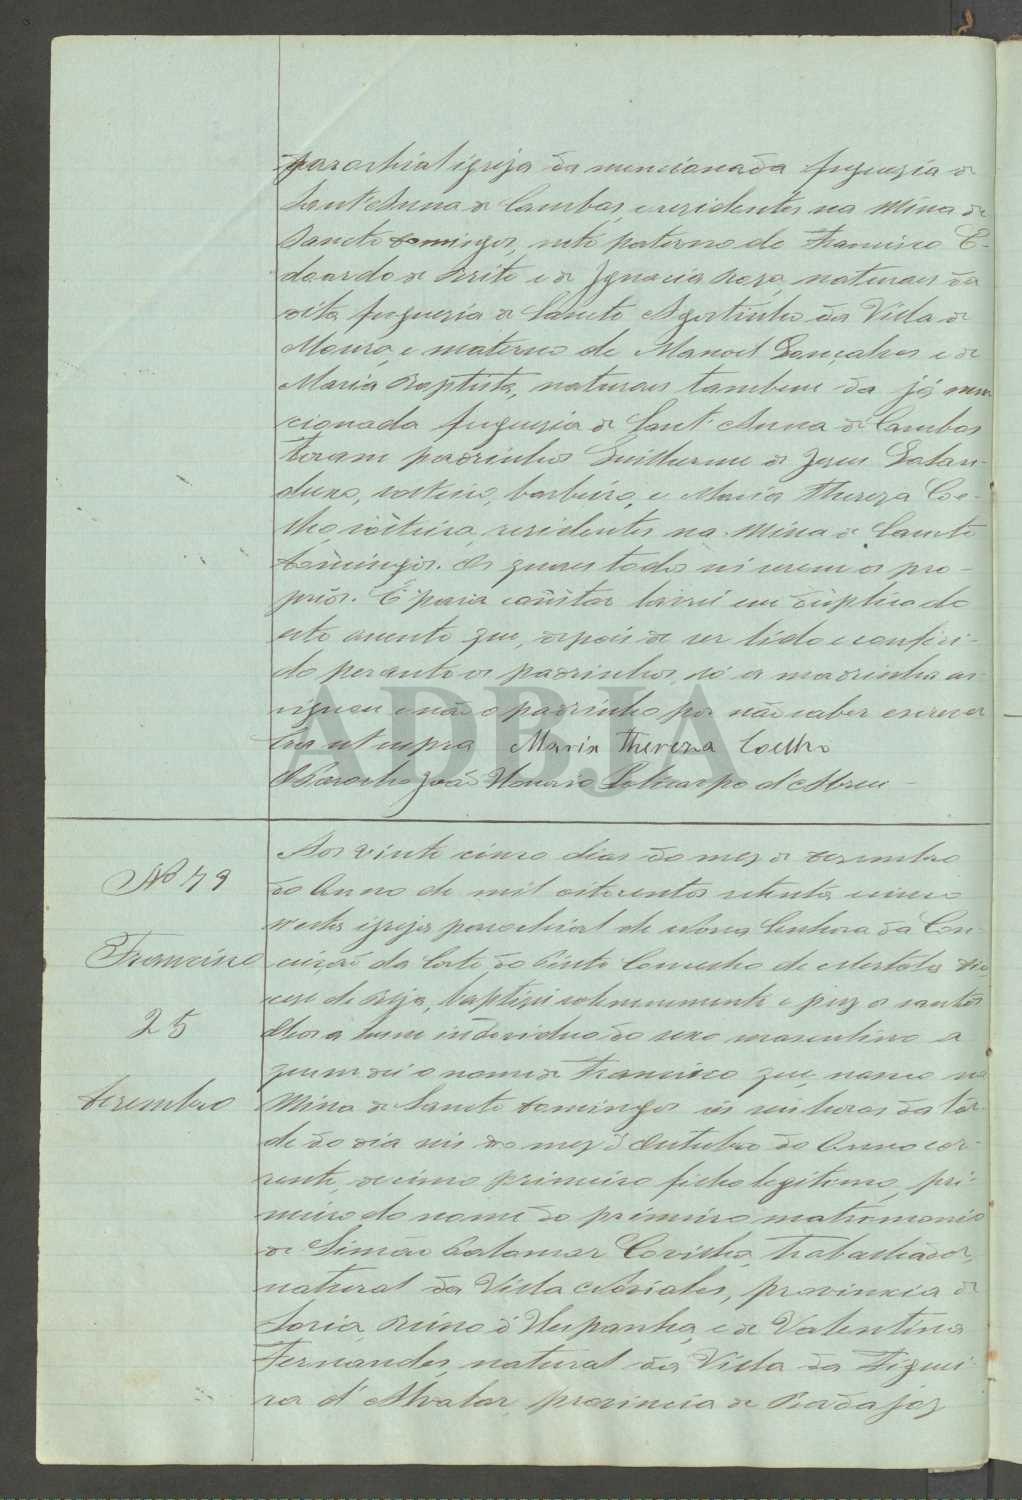 parochial igreja da mencionada freguezia de
Sant'Anna de Cambas, e residentes na Mina de
Sancto Domingos, neto paterno de Francisco E-
doardo de Brito e de Ignacia Roza, naturaes da
dita freguezia de Sancto Agostinho da Villa de
Moura, e materno de Manoel Gonçalves e de
Maria Baptista, naturaes tambem da já men
cionada freguezia de Sant'Anna de Cambas
Foram padrinhos Guilherme de Jesus
solteiro, barbeiro, e Maria Thereza Coe-
lho, solteira, residentes na Mina de Sancto
Domingos. Os quaes todos sei serem os pro-
prios. E para constar lavrei em duplicado
este assento que, depois de ser lido e conferi-
do perante os padrinhos, só a madrinha as-
signou e não o padrinho por não saber escrever
Era ut supra Maria Thereza Coelho
O Parocho João Honorio Policarpo d'Abreu
Nº 79
Francisco
25
Dezembro
Aos vinte cinco dias do mez de Dezembro
do Anno de mil oitocentos setenta e cinco
n'esta igreja parochial de Nossa Senhora da Con-
ceição da Corte do Pinto Concelho de Mertola Dio-
cese de Beja, baptizei solemnemente e puz os santos
Oleos a hum individuo do sexo masculino a
quem dei o nome de Francisco que nasceu na
Mina de Sancto Domingos ás seis horas da tar-
de do dia seis do mez d'Outubro do Anno cor-
rente, decimo primeiro filho legitimo, pri-
meiro do nome do primeiro matrimonio
de Simão trabalhador,
natural da Villa provincia de
Soria, Reino d'Hespanha, e de Valentina
Fernandes, natural da Villa da Figuei-
ra d' provincia de Badajoz
ADBJA